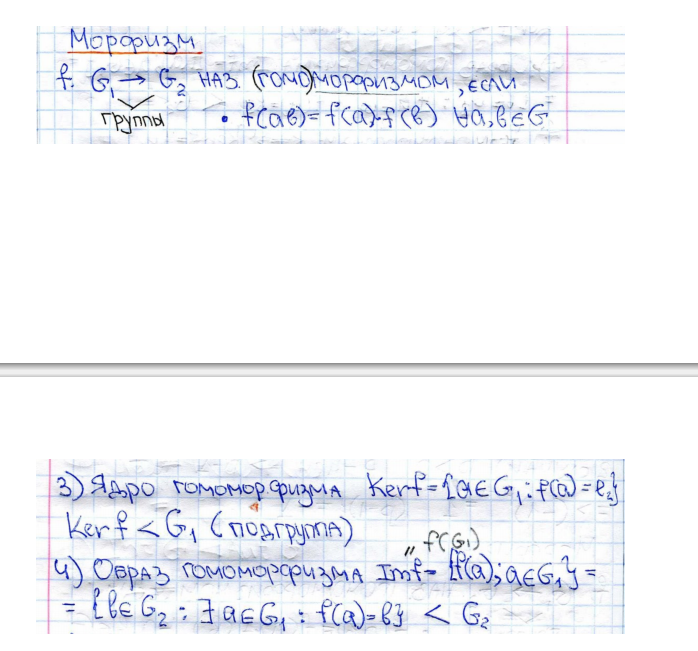 Морфизм
f: G₁ → G₂ наз. (гомо)морфизмом, если
группы • f(ab) = f(a)·f(b) ∀a,b∈G
3) Ядро гомоморфизма Kerf = {a∈G₁ : f(a) = e₂}
Kerf < G₁ (подгруппа)
" f(G₁)
4) Образ гомоморфизма Imf = {f(a); a∈G₁} =
= {b∈G₂ : ∃a∈G₁ : f(a)=b} < G₂